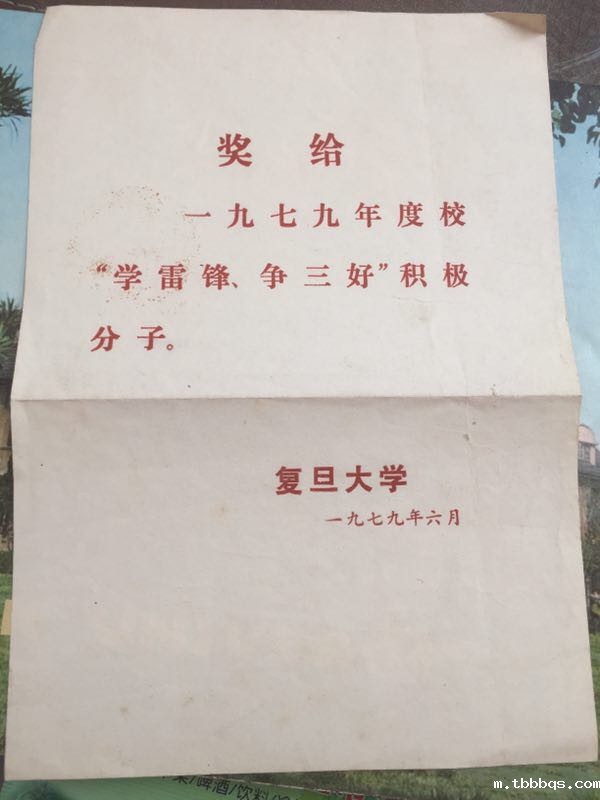 奖给
一九七九年度校
“学雷锋、争三好”积极
分子。
复旦大学
一九七九年六月
/啤酒/饮料/
m.tbbbqs.com